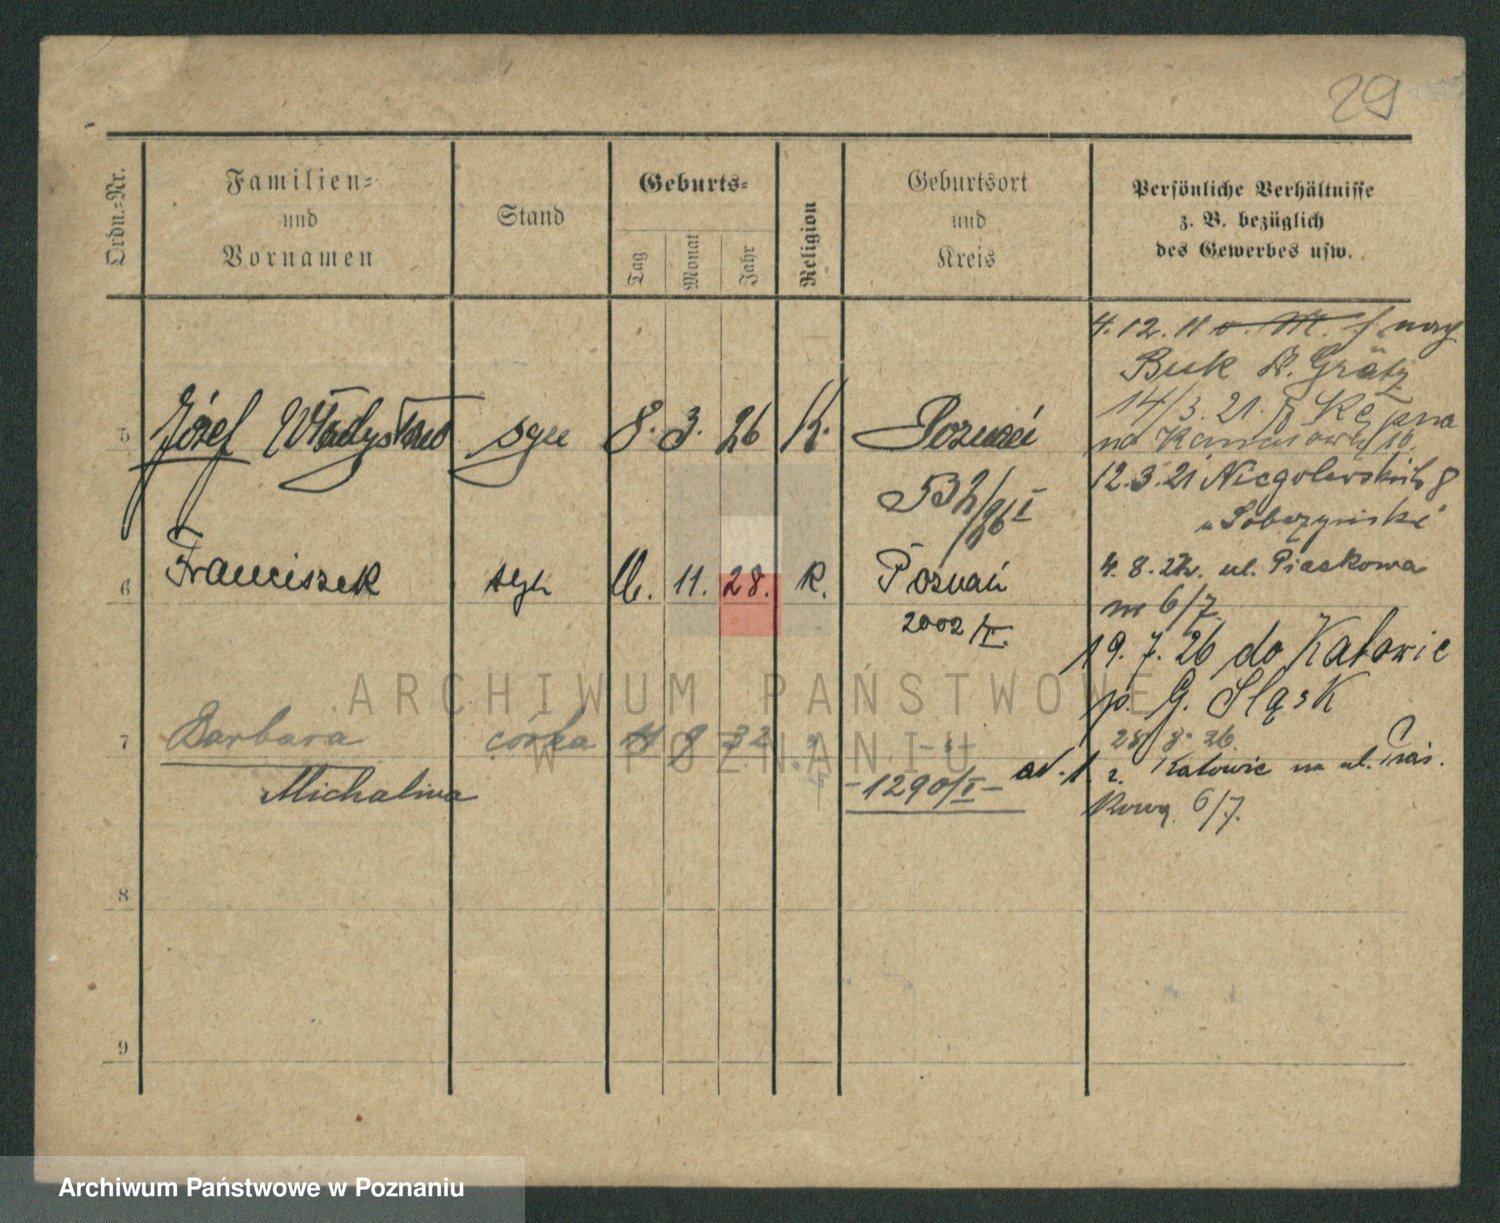 29
Ordn.-Nr.
Familien-
und
Vornamen
Stand
Geburts-
Tag
Monat
Jahr
Religion
Geburtsort
und
Kreis
Persönliche Verhältnisse
z. B. bezüglich
des Gewerbes usw.
5 Józef Władysław syn 8. 3. 26 K. Poznań
532/26 I
6 Franciszek syn 16. 11. 28. K. Poznań
2002/II.
7 Barbara córka 9 32
Michalina
-1290/I-
8
9
4. 12. 11 v. M. f
Buk K. Grätz
14/3. 21.
na
12.3.21 Niegolewskich 8
u Sobczyński
4. 8. 22. ul. Piaskowa
nr 6/7
19. 7. 26 do Katowic
p. G. Śląsk
28/8. 26.
ad. 1 z Katowic na ul. Pias.
kową 6/7.
ARCHIWUM PAŃSTWOWE
W POZNANIU
Archiwum Państwowe w Poznaniu